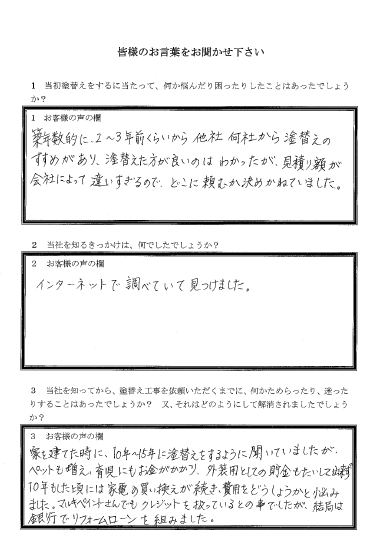 皆様のお言葉をお聞かせ下さい
1 当初塗替えをするに当たって、何か悩んだり困ったりしたことはあったでしょう
か?
1 お客様の声の欄
築年数的に、2~3年前くらいから他社何社から塗替えの
すすめがあり、塗替えた方が良いのはわかったが、見積り額が
会社によって違いすぎるので、どこに頼むか決めかねていました。
2 当社を知るきっかけは、何でしたでしょうか?
2 お客様の声の欄
インターネットで調べていて見つけました。
3 当社を知ってから、塗替え工事を依頼いただくまでに、何かためらったり、迷った
りすることはあったでしょうか? 又、それはどのようにして解消されましたでしょう
か?
3 お客様の声の欄
家を建てた時に、10年~15年に塗替えをするように聞いていましたが、
ペットも増え、育児にもお金がかかり、外装用としての貯金もたいして出来ず
10年もした頃には家電の買い換えが続き、費用をどうしようかと悩み
ました。マルキペイントさんでもクレジットを扱っているとの事でしたが、結局は
銀行でリフォームローンを組みました。